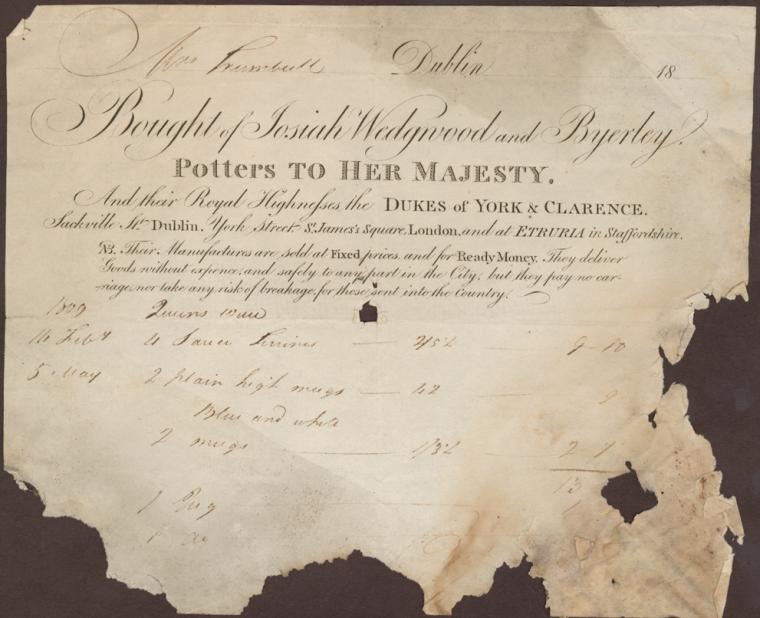 Mrs Trumbull Dublin 18
Bought of Josiah Wedgwood and Byerley.
Potters TO HER MAJESTY.
And their Royal Highnesses, the DUKES of YORK & CLARENCE.
Sackville Stt. Dublin. York Street St. James's Square, London, and at ETRURIA in Staffordshire.
NB. Their Manufactures are sold at Fixed prices and for Ready Money. They deliver
Goods without expence, and safely to any part in the City, but they pay no car-
riage, nor take any risk of breakage, for those sent into the Country.
Queens ware
4 Sauce
5 May 2 plain high mugs
Blue and white
2 mugs 2 7
13
1